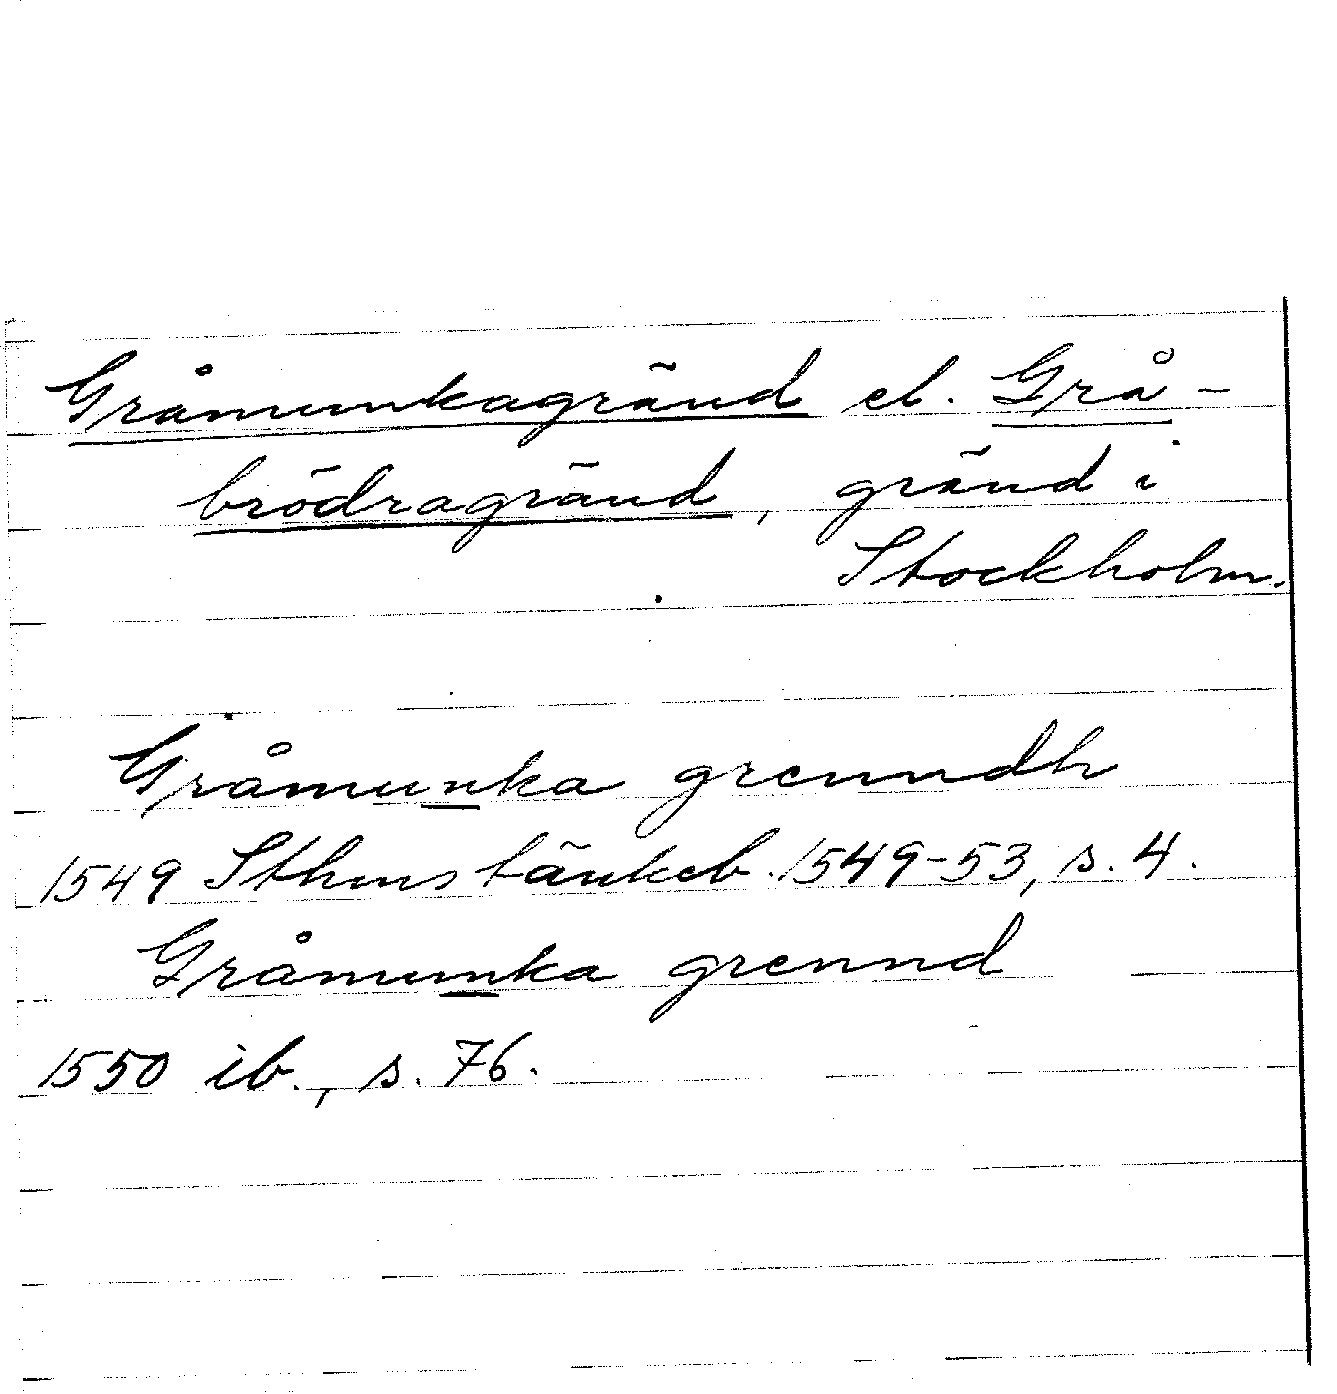 Gråmunkagränd el. Grå-
brödragränd, gränd i
Stockholm.
Gråmunka grenndh
1549 Sthms tänkeb. 1549-53, s. 4.
Gråmunka grennd
1550 ib., s. 76.